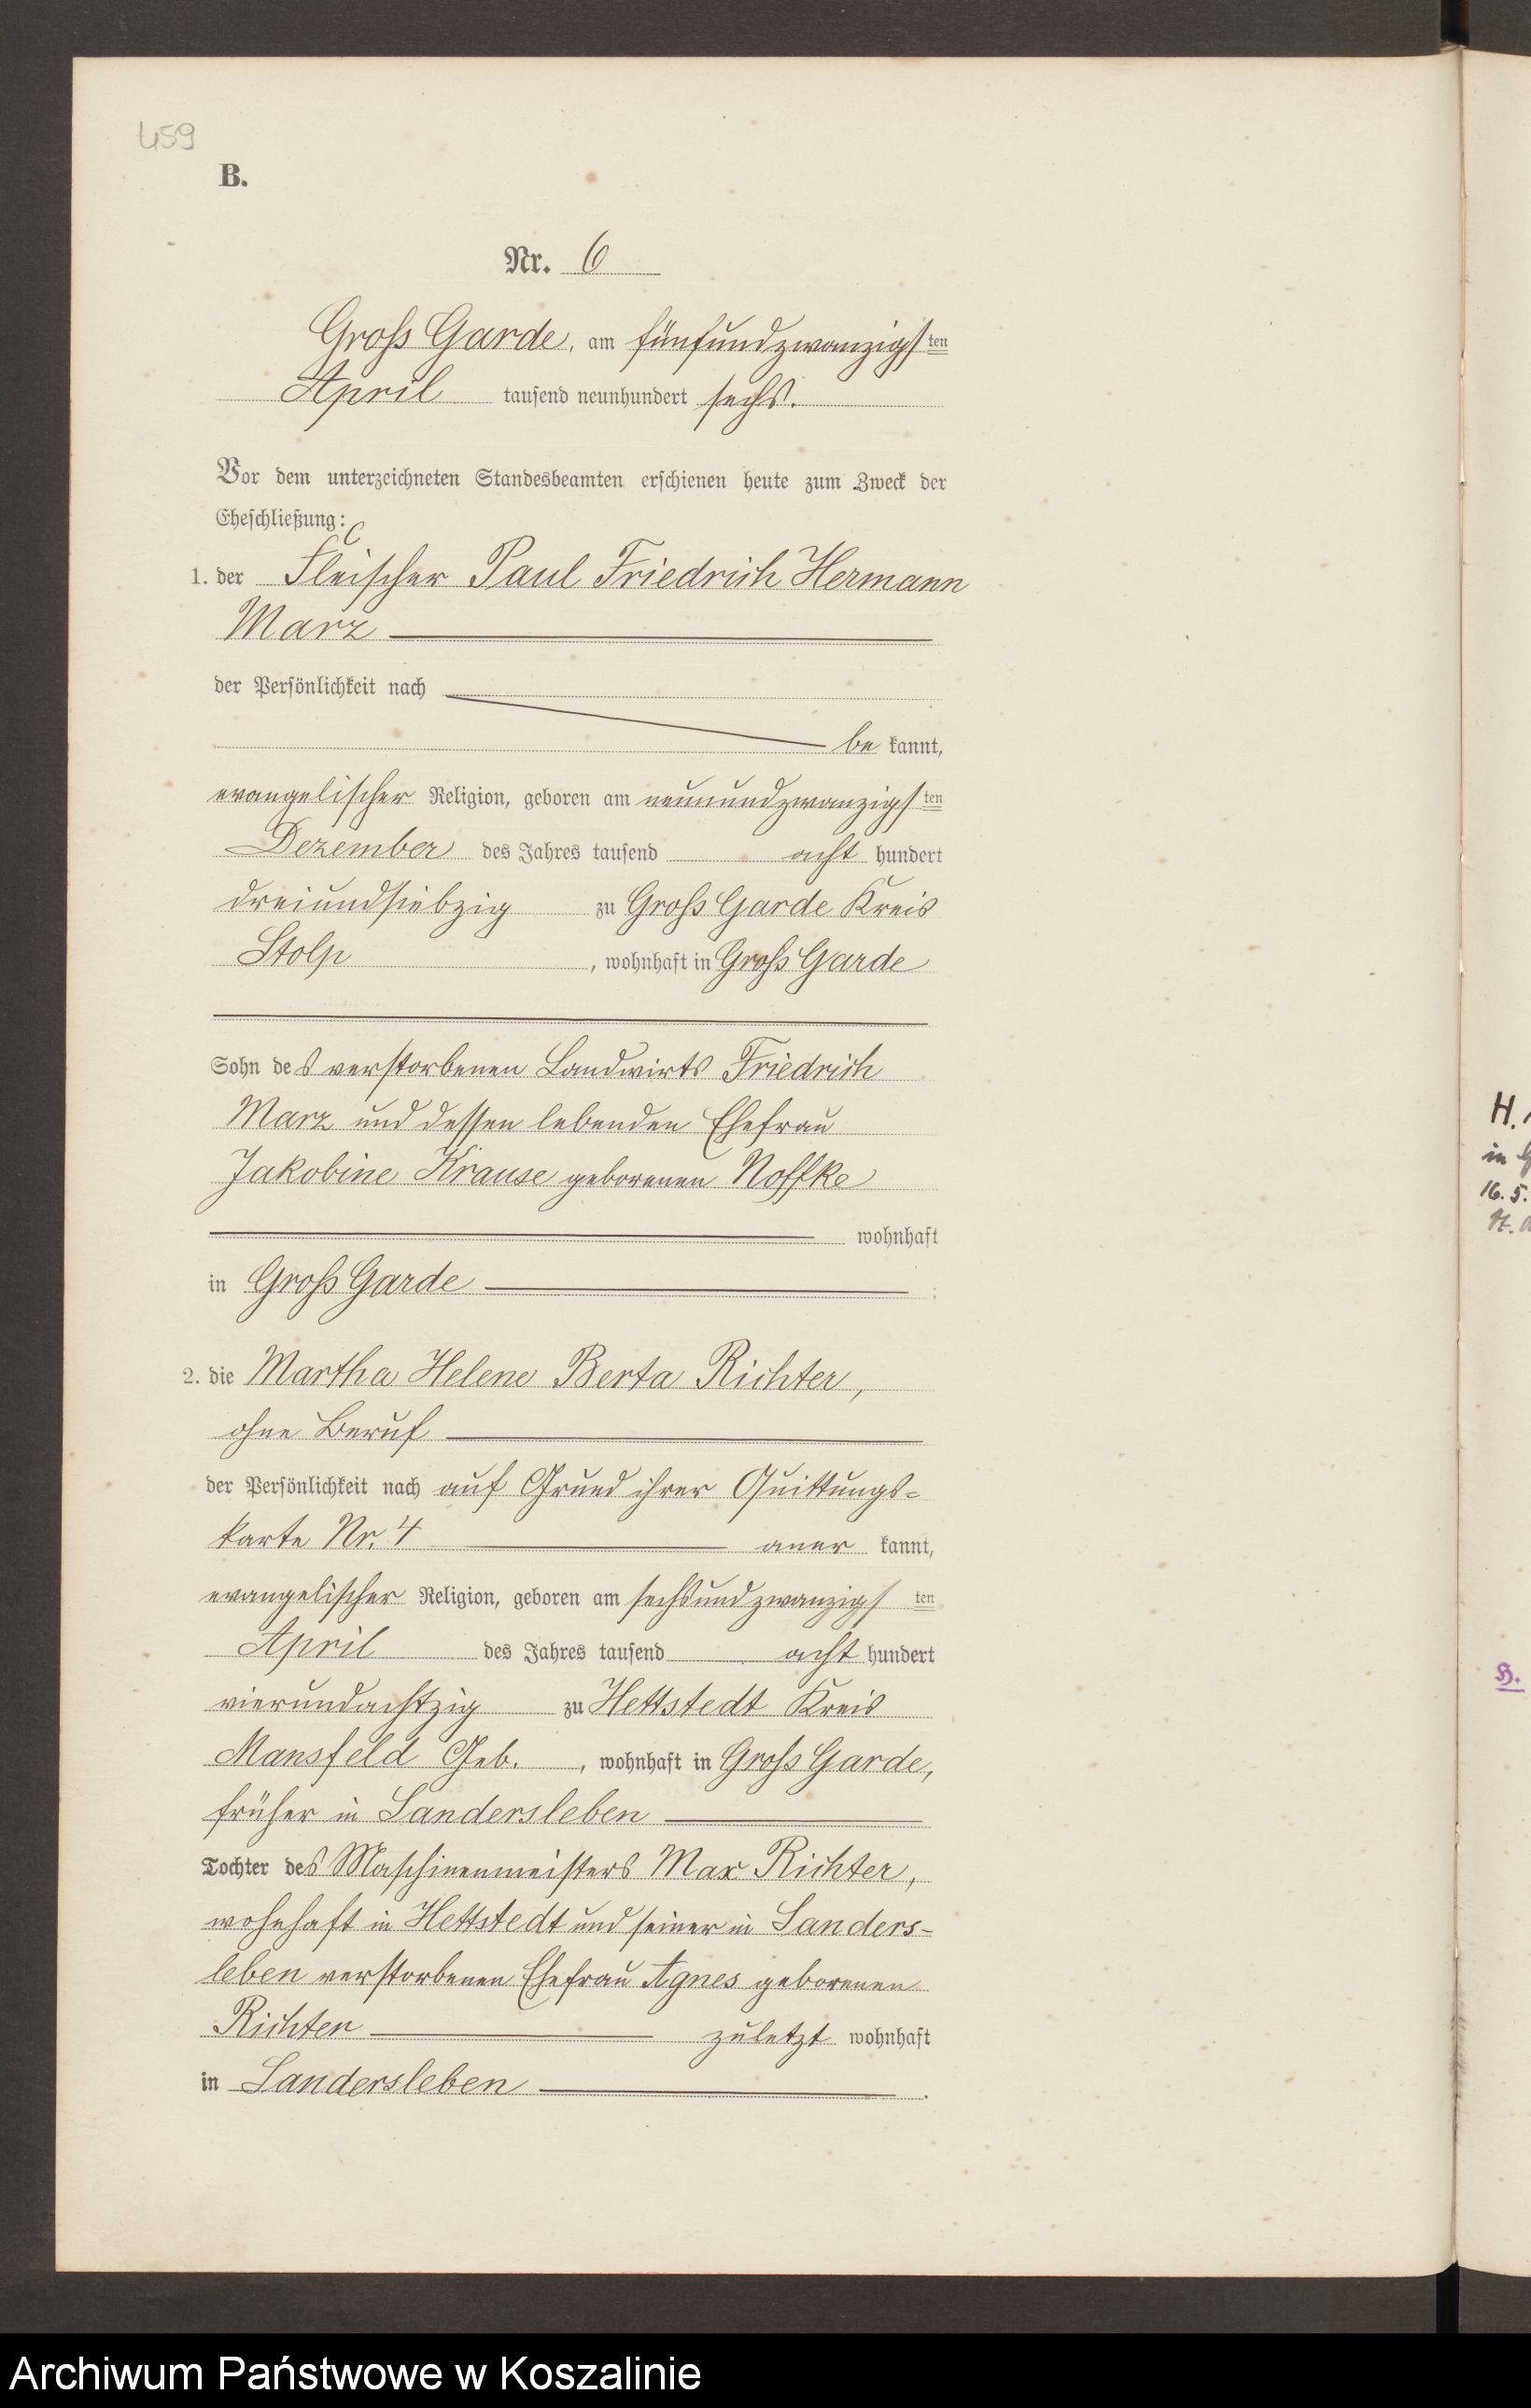 459
B.
Nr. 6
Groß Garde, am fünfundzwanzigsten
April tausend neunhundert sechs.
Vor dem unterzeichneten Standesbeamten erschienen heute zum Zweck der
Eheschließung:
1. der Fleischer Paul Friedrich Hermann
Marz
der Persönlichkeit nach
be kannt,
evangelischer Religion, geboren am neunundzwanzigsten
Dezember des Jahres tausend acht hundert
dreiundsiebzig zu Groß Garde Kreis
Stolp, wohnhaft in Groß Garde
Sohn des verstorbenen Landwirts Friedrich
Marz und dessen lebenden Ehefrau
Jakobine Krause geborenen Noffke
wohnhaft
in Groß Garde ;
2. die Martha Helene Berta Richter,
ohne Beruf
der Persönlichkeit nach auf Grund ihrer Quittungs=
karte Nr. 4 aner kannt,
evangelischer Religion, geboren am sechsundzwanzigsten
April des Jahres tausend acht hundert
vierundachtzig zu Hettstedt Kreis
Mansfeld Geb., wohnhaft in Groß Garde,
früher in Sandersleben
Tochter des Maschinenmeisters Max Richter,
wohnhaft in Hettstedt und seiner in Sanders-
leben verstorbenen Ehefrau Agnes geborenen
Richter zuletzt wohnhaft
in Sandersleben .
H.
in G
16. 5.
H.
H.
Archiwum Państwowe w Koszalinie